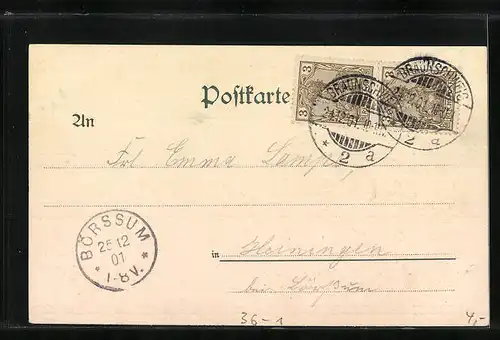 Postkarte
3 3
BRAUNSCHWEIG
* 2 a
BRAUNSCHWEIG
2 a
An
Frl Emma Lampe,
BÖRSSUM
25 12
01
* 7-8V. *
in Heiningen
bei Börßum
36-1
4,-